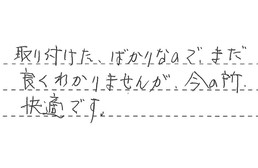 取り付けた、ばかりなので、まだ
良くわかりませんが、今の所、
快適です。